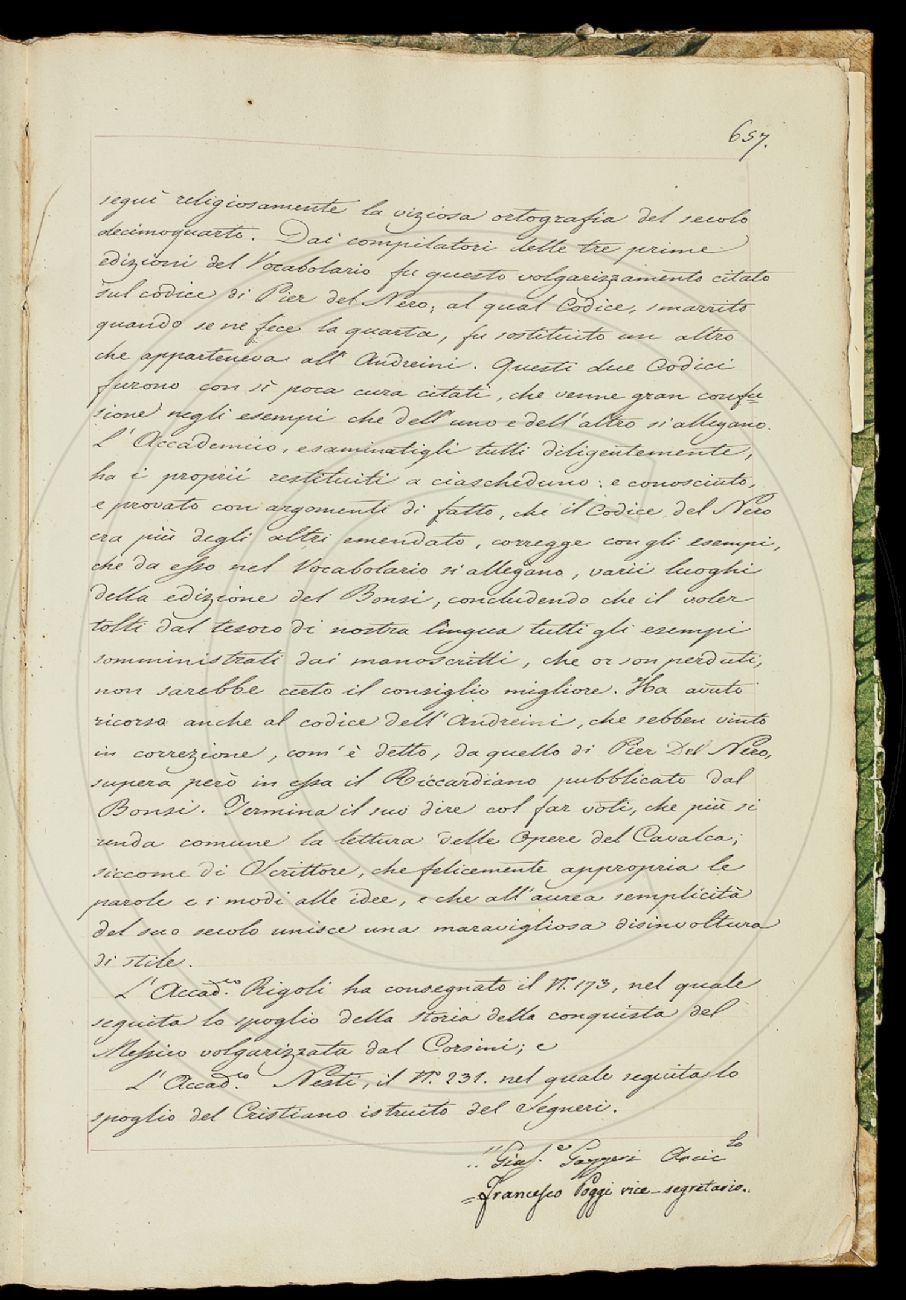 657.
seguì religiosamente la viziosa ortografia del secolo
decimoquarto. Dai compilatori delle tre prime
edizioni del Vocabolario fu questo volgarizzamento citato
sul codice di Pier del Nero; al qual Codice, smarrito
quando se ne fece la quarta, fu sostituito un altro
che apparteneva all' Andreini. Questi due Codici
furono con sì poca cura citati, che venne gran confu=
sione negli esempi che dell' uno e dell' altro si allegano.
L' Accademico, esaminatigli tutti diligentemente,
ha i proprii restituiti a ciascheduno: e conosciuto,
e provato con argomenti di fatto, che il Codice del Nero
era più degli altri emendato, corregge con gli esempi,
che da esso nel Vocabolario si allegano, varii luoghi
della edizione del Bonsi, concludendo che il voler
tolti dal tesoro di nostra lingua tutti gli esempi
somministrati dai manoscritti, che or son perduti,
non sarebbe certo il consiglio migliore. Ha avuto
ricorso anche al codice dell' Andreini, che sebben vinto
in correzione, com' è detto, da quello di Pier Del Nero,
supera però in essa il Riccardiano pubblicato dal
Bonsi. Termina il suo dire col far voti, che più si
renda comune la lettura delle Opere del Cavalca;
siccome di Scrittore, che felicemente appropria le
parole e i modi alle idee, e che all' aurea semplicità
del suo secolo unisce una maravigliosa disinvoltura
di stile.
L' Accad.co Rigoli ha consegnato il N. 173, nel quale
seguita lo spoglio della storia della conquista del
Messico volgarizzata dal Corsini; e
L' Accad.co Nesti, il N. 231. nel quale seguita lo
spoglio del Cristiano istruito del Segneri.
Gius.e Gazzeri Arcic.lo
=Francesco Poggi vice-segretario.